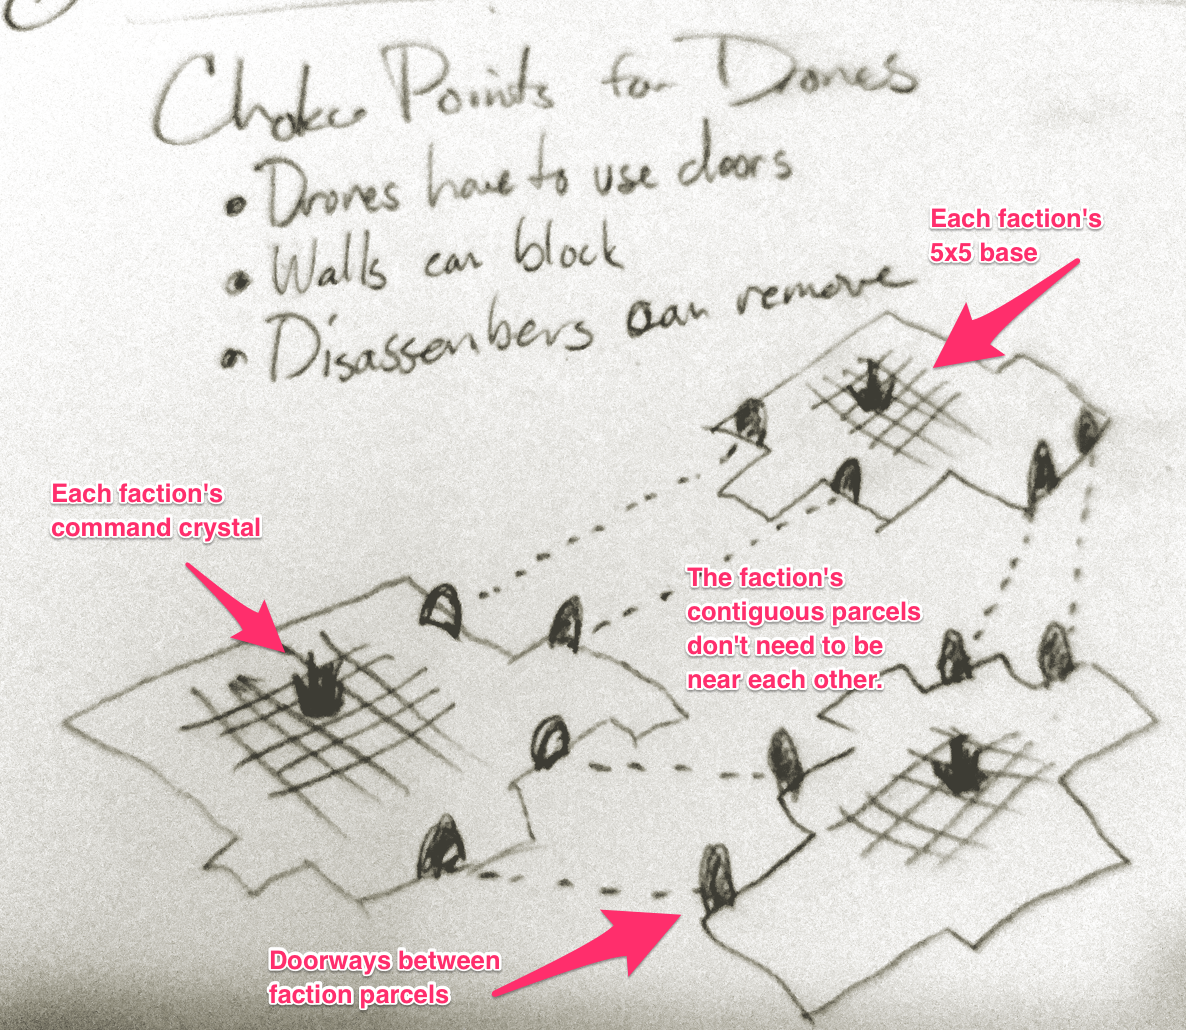 Choke Points for Drones
• Drones have to use doors
• Walls can block
• Disassembers can remove
Each faction's
5x5 base
Each faction's
command crystal
The faction's
contiguous parcels
don't need to be
near each other.
Doorways between
faction parcels